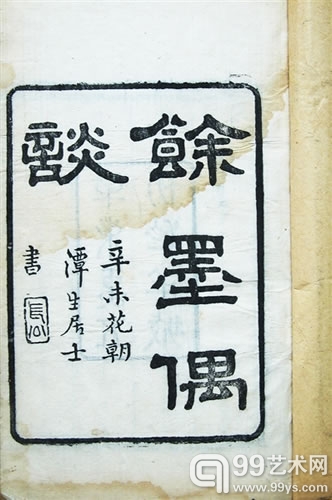 餘墨偶
談
辛未花朝
潭生居士
書
99艺术网
www.99ys.com